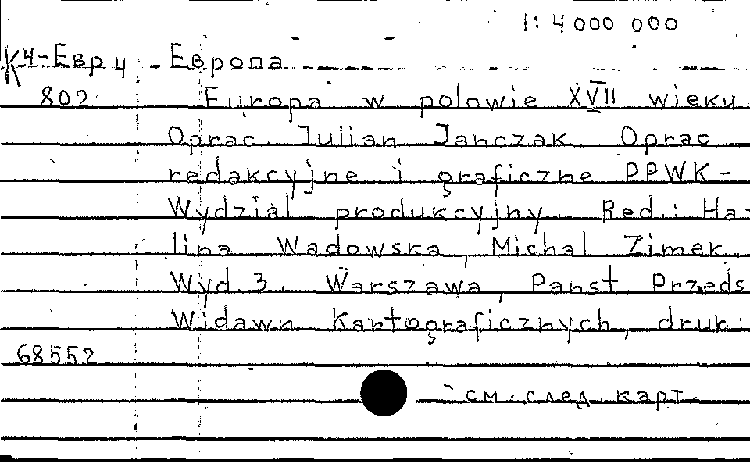 1: 4 000 000
К4-Евр 4 Европа
802 Europa w polowie XVII wieku
Oprac. Julian Janczak. Oprac
redakcyjne i graficzne PPWK-
Wydzial produkcyjny. Red.: Ha-
lina Wadowska, Michal Zimek.
Wyd. 3. Warszawa, Panst Przeds
Widawn Kartograficznych, druk
68552
см. след карт.